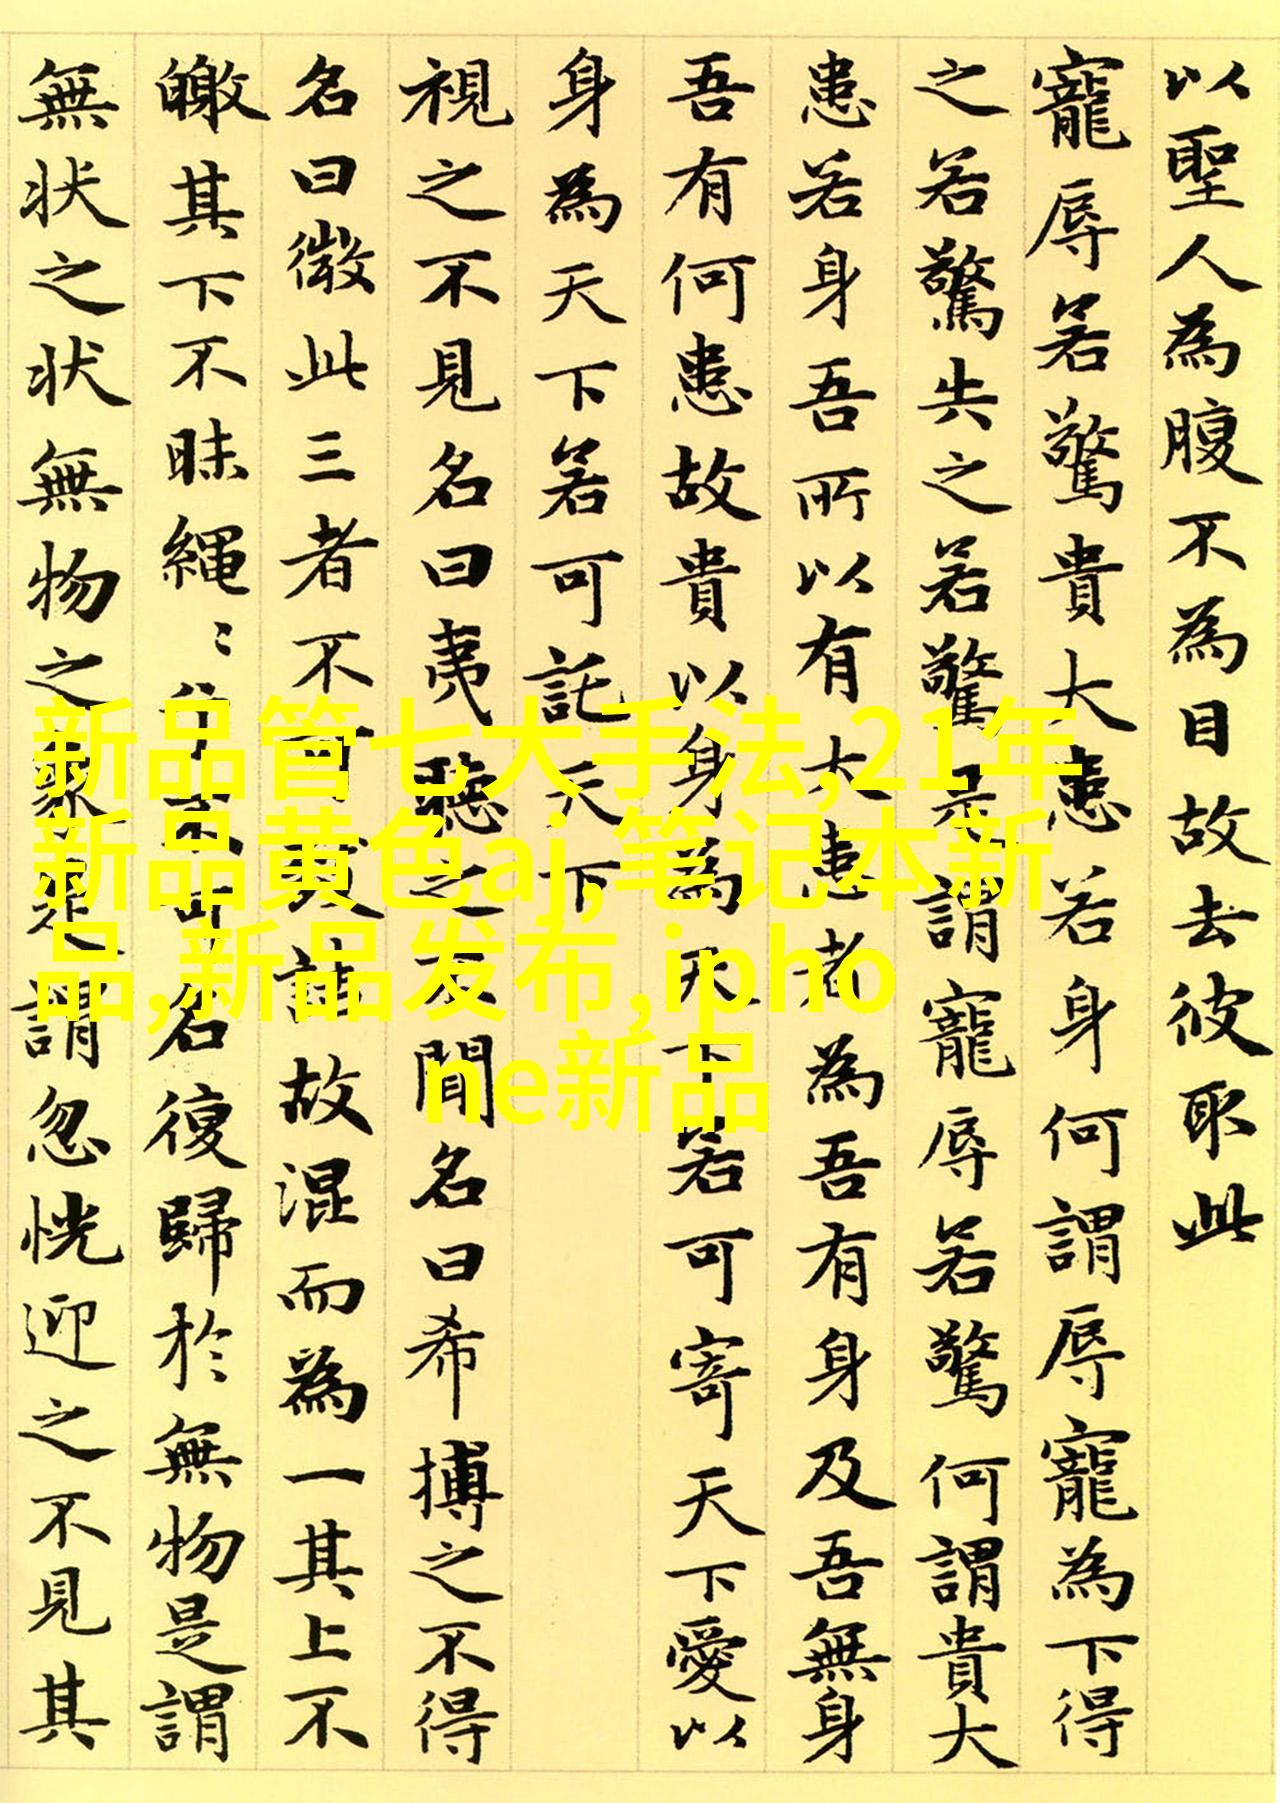 以聖人為腹不為目故去彼取此
寵辱若驚貴大患若身何謂辱寵為下得
之若驚失之若驚是謂寵辱若驚何謂貴大
患若身吾所以有大患者為吾有身及吾無身
吾有何患故貴以身為天下若可寄天下愛以
身為天下若可託天下
視之不見名曰夷聽之不聞名曰希搏之不得
名曰微此三者不可致詰故混而為一其上不
皦其下不昧繩〻兮不可名復歸於無物是謂
無状之状無物之象是謂忽恍迎之不見其
新品管七大手法,21年
新品黄色aj,笔记本新
品,新品发布,ipho
ne新品